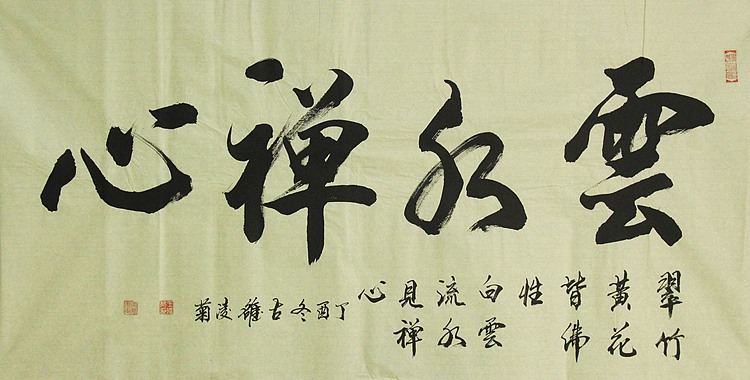 雲水禪心
翠竹
黃花
皆佛
性
白雲
流水
見禪
心
丁酉冬古雒凌菊